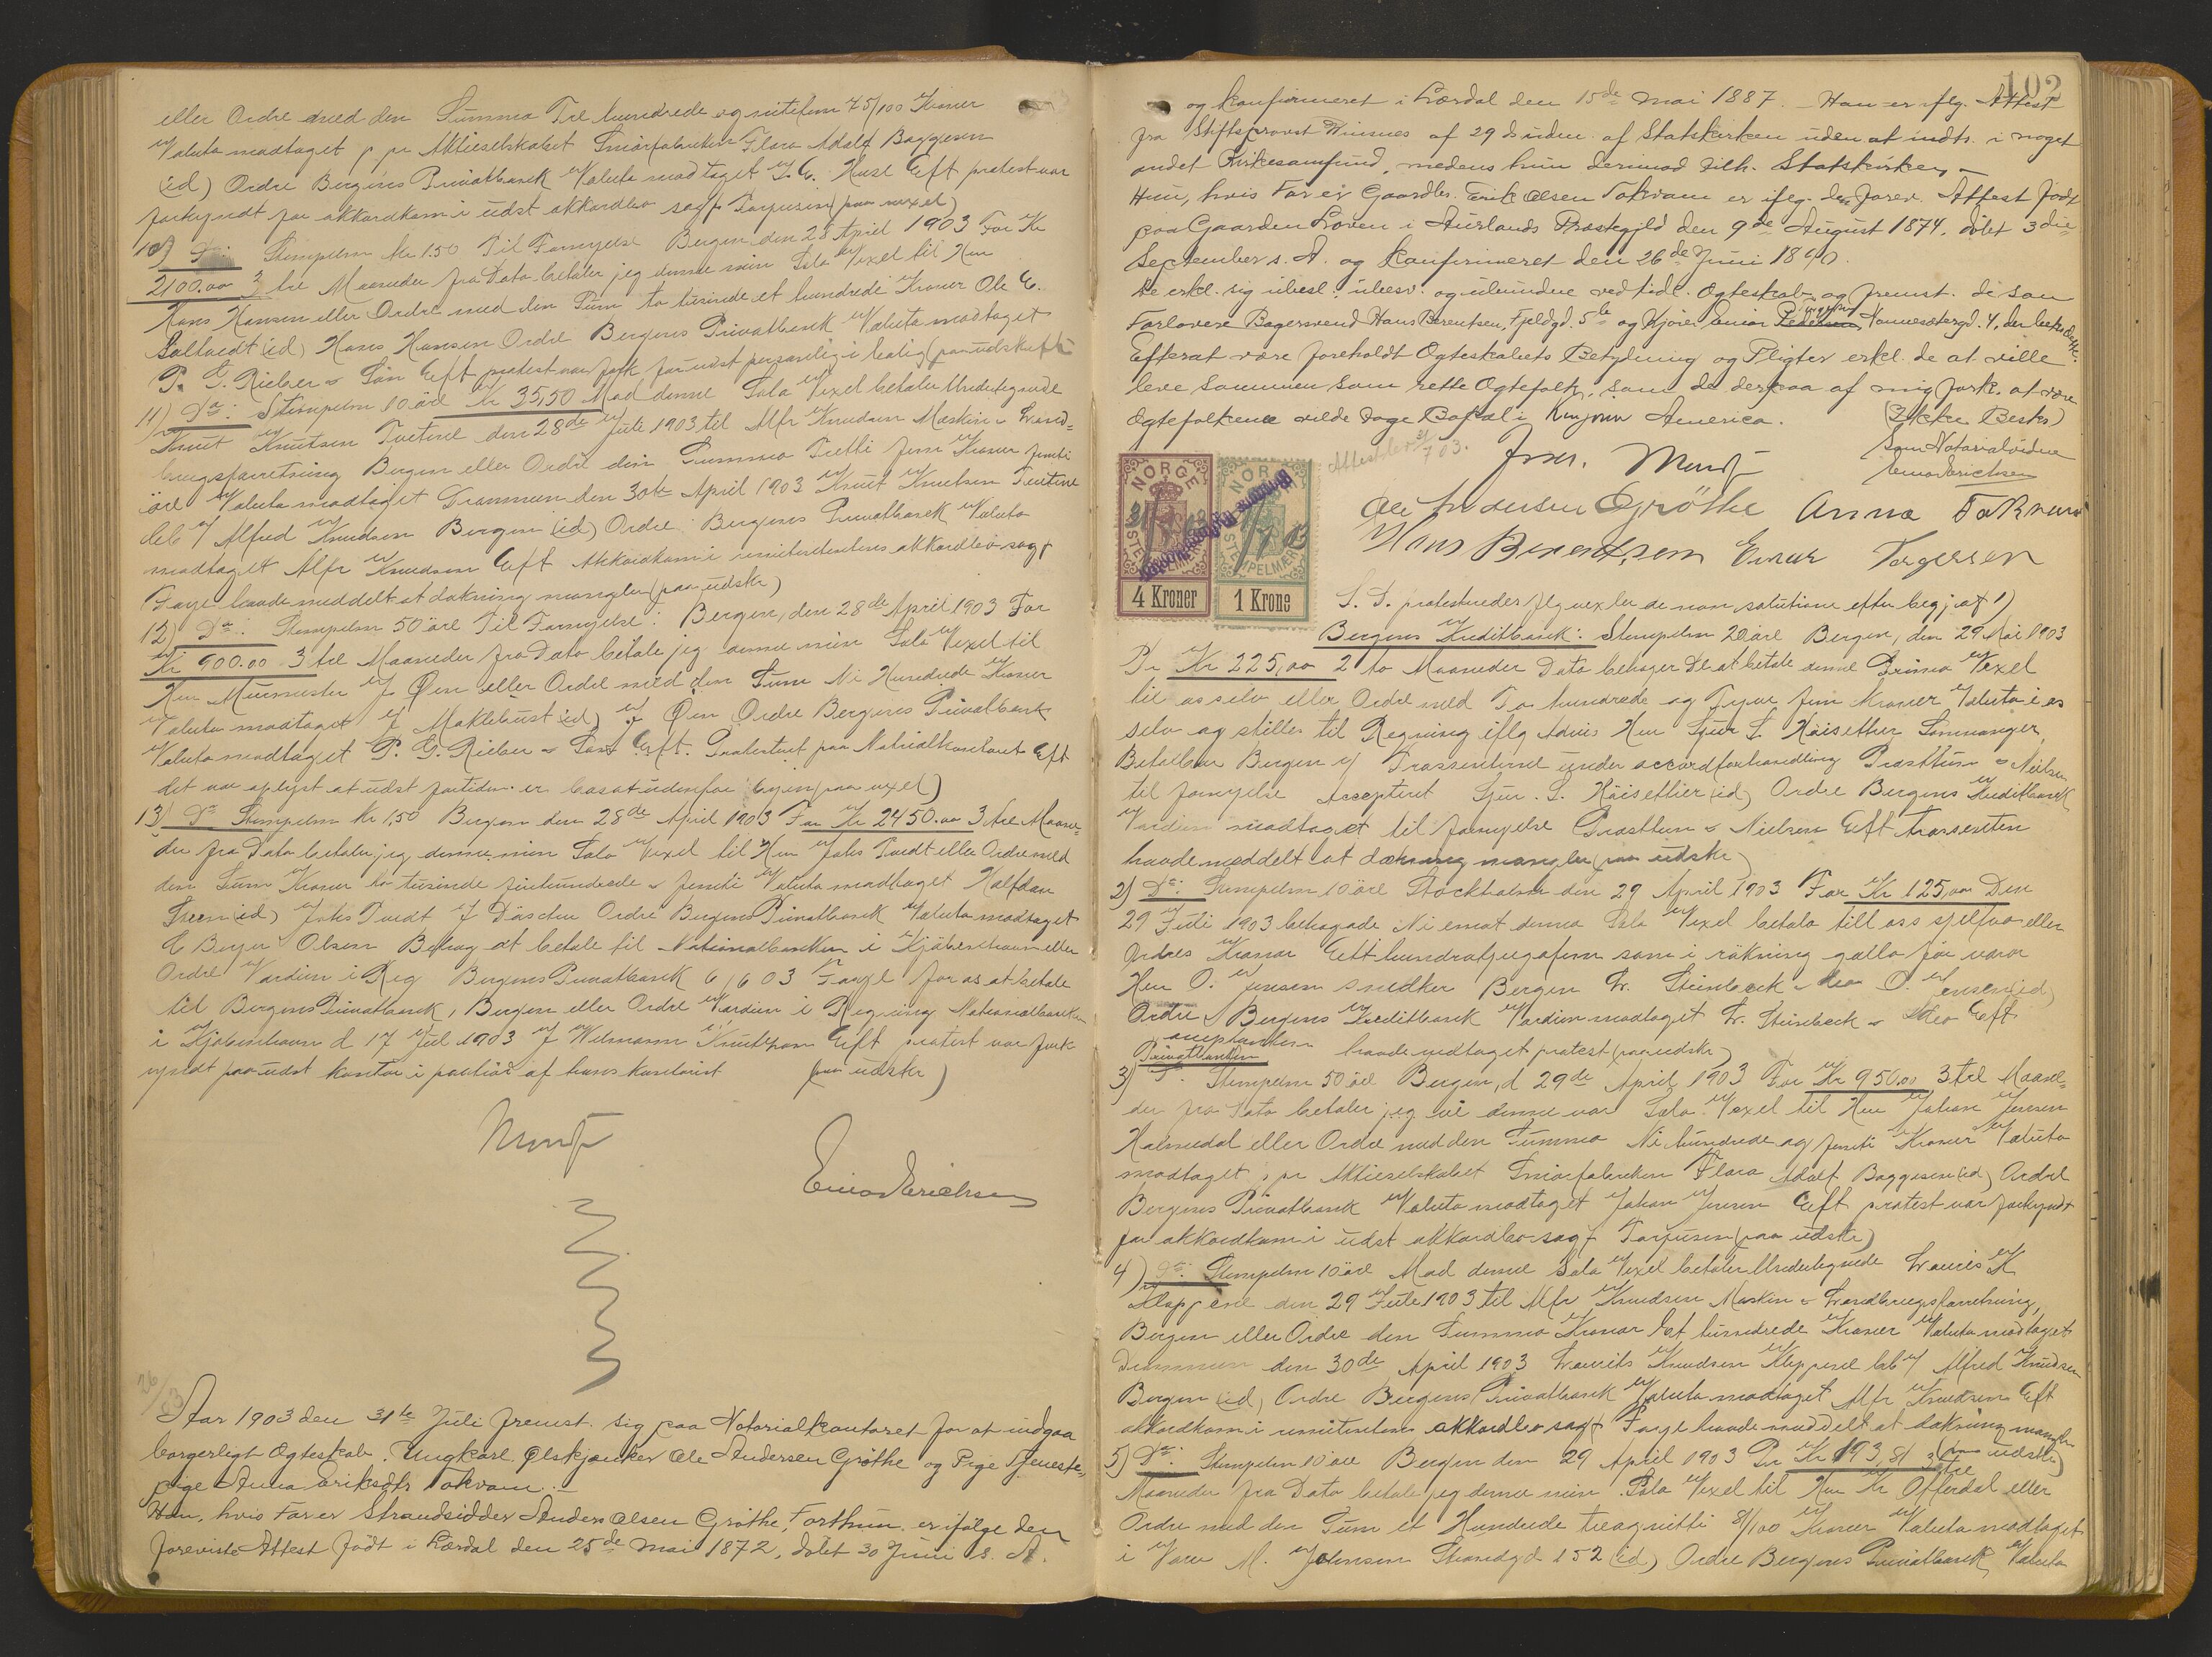 eller Ordre med den Summa Tre hundrede og nittifem 75/100 Kroner
Valuta modtaget p. pr Aktieselskabet Smörfabriken Flora Adolf Baggesen
(id) Ordre Bergens Privatbank Valuta modtaget Eft protest var
forkyndt for akkordkom i udst akkordbo sagf Torjusen (paa vexel)
10) Stempelm Kr 1.50 Til Fornyelse Bergen den 28 April 1903 For Kr
2100.00 3 tre Maaneder fra Dato betaler jeg denne min Sola Vexel til Herr
Hans Hansen eller Ordre med den Sum to tusinde et hundrede Kroner Ole E.
(id) Hans Hansen Ordre Bergens Privatbank Valuta modtaget
P. G. Rieber & Sön Eft protest var fork for udst personlig i bolig (paa udskrift)
11) Do: Stempelm 10 öre Kr 35,50 Mod denne Sola Vexel betaler Undertegnede
Knut Knutsen Tveitene den 28de Juli 1903 til Alfr Knudsen Maskin & Land=
brugsforretning Bergen eller Ordre den Summa Tretti fem Kroner femti
öre Valuta modtaget Drammen den 30te April 1903 Knut Knutsen Tveitene
bet / Alfred Knudsen Bergen (id) Ordre Bergens Privatbank Valuta
modtaget Alfr Knudsen Eft Akkordkom i remittentens akkordbo sagf
Faye havde meddelt at dækning mangler (paa udskr)
12) Do: Stempelm 50 öre Til Fornyelse: Bergen, den 28de April 1903 For
Kr 900.00 3 tre Maaneder fra Dato betale jeg denne min Sola Vexel til
Herr Murmester J Øen eller Ordre med den Sum Ni Hundrede Kroner
Valuta modtaget J Møklebust (id) J Øen Ordre Bergens Privatbank
Valuta modtaget P. G. Rieber & Sön Eft. Protesteret paa Notrialkontoret Eft
det var oplyst at udst fortiden er bosat udenfor byen (paa vexel)
13) Do Stempelm Kr 1,50 Bergen den 28de April 1903 For Kr 2450.00 3 tre Maane-
der fra Dato betaler jeg denne min Sola Vexel til Herr Johs Tvedt eller Ordre med
den Sum Kroner to tusinde firehundrede & femti Valuta modtaget Halfdan
Steen (id) Johs Tvedt Ordre Bergens Privatbank Valuta modtaget
C Berger Olsen Behag at betale til Nationalbanken i Kjöbenhavn eller
Ordre Værdien i Reg Bergens Privatbank 6/6 03 for os at betale
til Bergens Privatbank, Bergen eller Ordre Værdien i Regning Nationalbanken
i Kjöbenhavn d 17 Jul 1903 Eft protest var fork
yndt paa udst kontor i portiör af hans kontorist (paa udskr)
Munch
Einar Erichsen
26/03
Aar 1903 den 31te Juli fremst. sig paa Notarialkontoret for at indgaa
borgerligt Ogteskab. Ungkarl. Ølskjænker Ole Andersen Gröthe og Pige Tjeneste-
pige Anna Eriksdtr Tokvam. -
Han, hvis Far er Strandsidder Anders Olsen Gröthe, Forthun, er ifölge den
foreviste Attest födt i Lærdal den 25de Mai 1872, döbt 30 Juni s. A.
102
og konfirmeret i Lærdal den 15de Mai 1887. - Han er iflg. Attest
fra Stiftsprovst Wiesnes af 29 ds uden af Statskirken uden at indtr. i noget
andet Kirkesamfund, medens hun derimod tilh. Statskirken. -
Hun, hvis Far er Gaardbr. Erik Olsen Tokvam er iflg. den forev. Attest födt
paa Gaarden Loven i Aurlands Præstegjeld den 9de August 1874, döbt 3die
September s. A. og konfirmeret den 26de Juni 1890.
De erkl. sig ubesl., ubesv. og uhindrede ved tidl. Ogteskab, og fremst. de som
Forlovere Bagersvend Hans Berentsen, Fjeldgd. 5b og Kjörer Einar Pedersen Torgersen, Nonnesætergd. 4, der bekr. dette.
Efterat være foreholdt Ogteskabets Betydning og Pligter erkl. de at ville
leve sammen som rette Ogtefolk, som de derpaa af mig fork. at være
Ogtefolkene vilde tage Bopæl i Kenyon America. (Ikke Besks)
Attest blev 31/7 03.
Som Notarialvidne
Einar Erichsen
Munch
Ole Andersen Gröthe Anna Tokvam
Hans Berentsen Einar Torgersen
NORGE
STEMPELMÆRKE
4 Kroner
NORGE
STEMPELMÆRKE
1 Krone
S. D. protesteredes flg vexler de non solutione efter begj af 1)
Bergens Kreditbank: Stempelm 20 öre Bergen, den 29 Mai 1903
Pr Kr 225,00 2 to Maaneder Dato behager De at betale denne Prima Vexel
til os selv eller Ordre med To hundrede og Tyve fem Kroner Valuta i os
selv og stilles til Regning iflg Advis Herr Sjur S. Höisether Samnanger,
Betalbar Bergen / Trassenterne under accordforhandling Prasthun & Nielsen
til fornyelse Accepteret Sjur. S. Höisether (id) Ordre Bergens Kreditbank
Værdien modtaget til fornyelse Prasthun & Nielsen Eft trassenten
havde meddelt at dækning mangler (paa udskr)
2) Do: Stempelm 10 öre Stockholm den 29 April 1903 For Kr 125,00 Den
29 Juli 1903 behagade Ni emot denna Sola Vexel betala till oss sjelfva eller
Ordres Kronor Etthundratjugofem som i räkning gälla för varor
Herr O. Jensen snedker Bergen Lr. Steinbeck & Meo O. Jensen (id)
Ordre Bergens Kreditbank Værdien modtaget Lr. Steinbeck & Meo Eft
acceptanten havde vedtaget protest (paa udskr)
Privatbanken
3) Stempelm 50 öre Bergen, d 29de April 1903 For Kr 950.00 3 tre Maane=
der fra Dato betaler jeg vi denne vor Sola Vexel til Herr Johan Jensen
Holmedal eller Ordre med den Summa Ni hundrede og femti Kroner Valuta
modtaget, pr Aktieselskabet Smörfabriken Flora Adolf Baggesen (id) Ordre
Bergens Privatbank Valuta modtaget Johan Jensen Eft protest var forkyndt
for akkordkom i udst akkordbo sagf Torjusen (paa udskr)
4) Do: Stempelm 10 öre Mod denne Sola Vexel betaler Undertegnede Laurits K
Kleppene den 29 Juli 1903 til Alfr Knudsen Maskin & Landbrugsforretning,
Bergen eller Ordre den Summa Kroner Et hundrede Kroner Valuta modtaget
Drammen den 30de April 1903 Laurits Knudsen Kleppene bet / Alfred Knudsen
Bergen (id) Ordre Bergens Privatbank Valuta modtaget Alfr Knudsen Eft
akkordkom i remittentens akkordbo sagf Faye havde meddelt at dækning mangler
(paa udskr)
5) Do: Stempelm 10 öre Bergen den 29 April 1903 Pr Kr 193,81 3 tre
Maaneder fra Dato betale jeg denne min Sola Vexel til Herr Kr Offerdal eller
Ordre med den Sum et Hundrede treognitti 81/100 Kroner Valuta modtaget
i Varer M. Johnsen Strandgd 152 (id) Ordre Bergens Privatbank Valuta